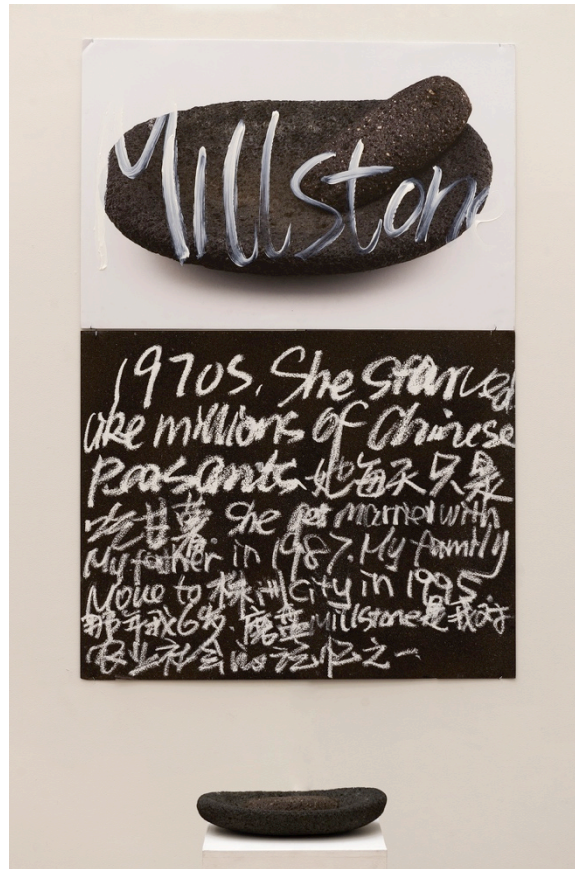 Millstone
1970s. She starved
like millions of Chinese
Peasants. 她每天只是
吃甘薯. She get married with
My father in 1987. My family
Move to 株洲 City in 1995.
那年我6岁. 磨盘 Millstone 是我对
农业社会的记忆之一